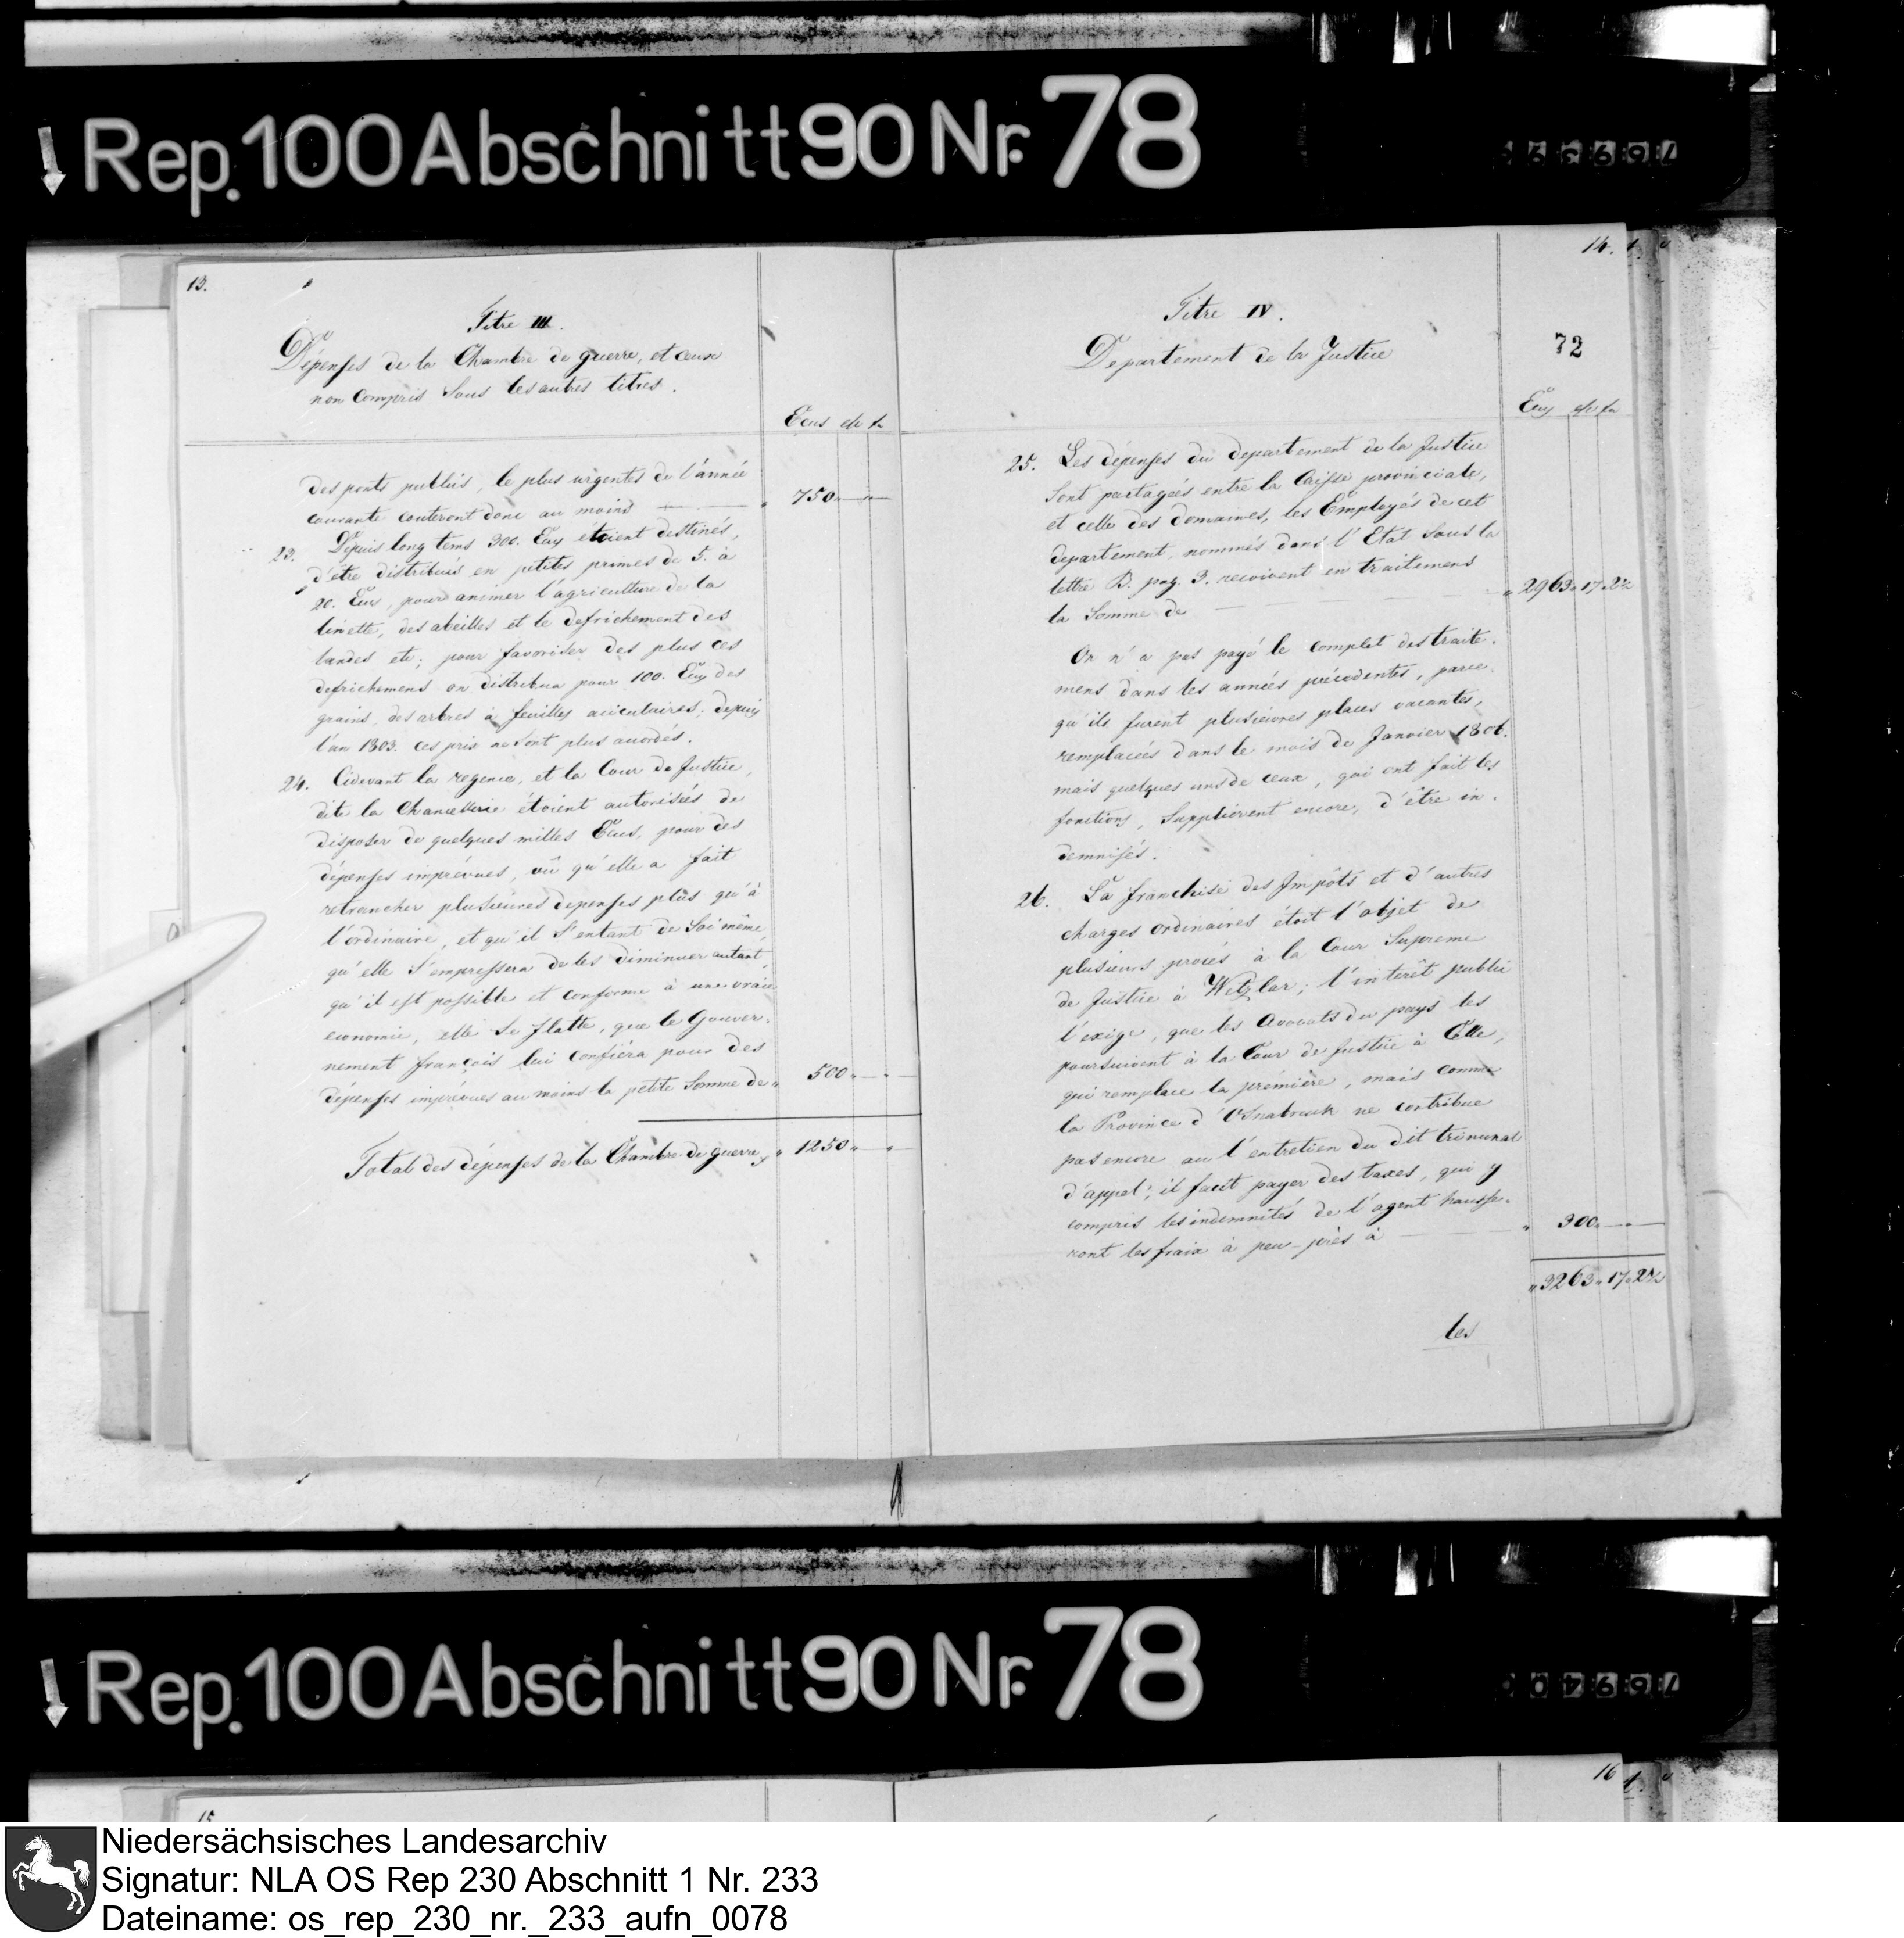 Rep. 100 Abschnitt 90 Nr. 78
13.
Titre III.
Dépenses de la Chambre de guerre, et ceux
non compris sous les autres titres.
Ecus
des ponts publics, le plus urgentes de l'année
courante couteront donc au moins 750
23. Dépuis long tems 300. Ecus étoient destinés,
d'être distribués en petites primes de 5. à
20. Ecus, pour animer l'agriculture de la
des abeilles et le defrichement des
landes etc; pour favoriser des plus ces
defrichemens on distribua pour 100. Ecus des
grains, des arbres à feuilles aciculaires; depuis
l'an 1803. ces prix ne sont plus accordés.
24. Cidevant la regence, et la Cour de Justice,
dite la Chancellerie étoient autorisées de
disposer de quelques milles Ecus, pour des
dépenses imprévues, vû qu'elle a fait
retrancher plusieures depenses plûs qu'à
l'ordinaire, et qu'il s'entant de soi même,
qu'elle s'empressera de les diminuer autant,
qu'il est possible et conforme à une vraie
economie, elle se flatte, que le Gouver-
nement françois lui confiéra pour des
dépenses imprévues au moins la petite somme de 500
Total des dépenses de la Chambre de guerre 1250
14.
Titre IV.
Departement de la Justice
72
Ecus
25. Les dépenses du departement de la Justice
sont partagées entre la Caisse provinciale,
et celle des domaines, les Employés de cet
departement, nommés dans l'Etat sous la
lettre B. pag. 3. recoivent en traitemens
la Somme de 2963 17
On n'a pas payé le complet des traite-
mens dans les années précedentes, parce-
qu'ils furent plusieures places vacantes,
remplacées dans le mois de Janvier 1806.
mais quelques uns de ceux, qui ont fait les
fonctions, supplièrent encore, d'être in-
demnisés.
26. La franchise des Impôts et d'autres
charges ordinaires étoit l'objet de
plusieurs procés à la Cour Supreme
de Justice à Wetzlar; l'interêt public
l'exige, que les Avocats du pays les
poursuivent à la Cour de Justice à Celle,
qui remplace la première, mais comme
la Province d'Osnabreuk ne contribue
pas encore au l'entretien du dit trinunal
d'appel; il faut payer des taxes, qui y
compris les indemnités de l'agent hausse-
ront les fraix à peu-près à 300
3263 17
les
Rep. 100 Abschnitt 90 Nr. 78
15
16
Niedersächsisches Landesarchiv
Signatur: NLA OS Rep 230 Abschnitt 1 Nr. 233
Dateiname: os_rep_230_nr._233_aufn_0078